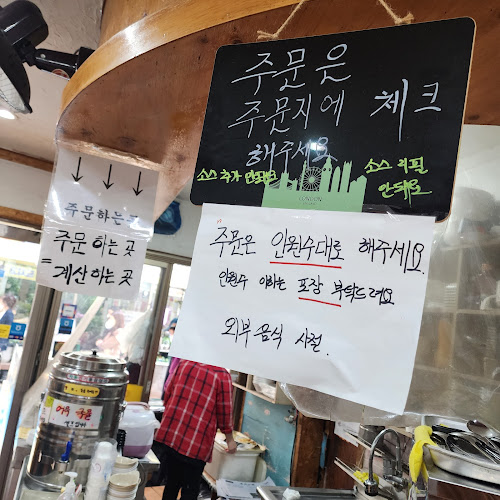 주문은
주문지에 체크
해주세요
소스 추가 안돼요
소스 리필
안돼요
LONDON
↓ ↓ ↓
주문하는곳
주문하는 곳
=
계산하는 곳
주문은 인원수대로 해주세요.
인원수 이하는 포장 부탁드려요
외부음식 사절.